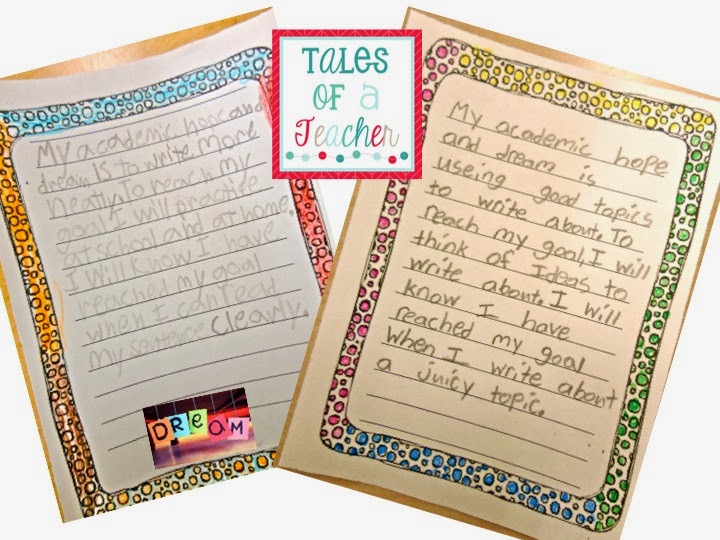 TaLes
OF a
Teacher
My academic hope and
dream is to write more
neatly. To reach my
goal I will practice
at school and at home.
I will know I have
reached my goal
when I can read
my sentence Clearly.
DReaM
My academic hope
and dream is
useing good topics
to write about. To
reach my goal, I will
think of Ideas to
write about. I will
know I have
reached my goal
when I write about
a juicy topic.